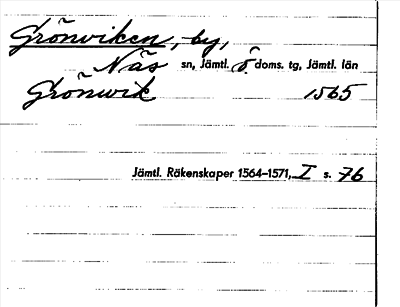 Grönviken, by,
Näs sn, Jämtl. Ö. doms. tg, Jämtl. län
Grönwik 1565
Jämtl. Räkenskaper 1564–1571, I s. 76